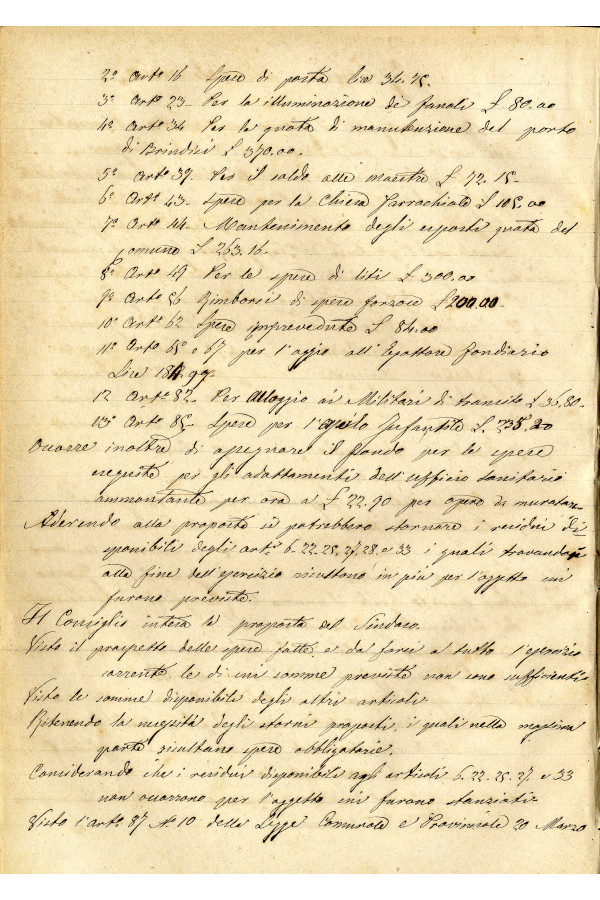 2º Artº 16 Spese di posta lire 34.75.
3º Artº 23- Per la illuminazione de' fanali £ 80.00
4º Artº 34 Per la quota di manutenzione del porto
di Brindisi £ 370.00.
5º Artº 39. Per il saldo alle maestre £. 72.15-
6º Artº 43. Spese per la Chiesa Parrochiale £ 105.00
7º Artº 44- Mantenimento degli esposti quota del
comune £. 263.16-
8º Artº 49 Per le spese di liti £ 300.00
9º Artº 56 Rimborsi di spese forzose £ 200.00-
10º Artº 62 Spese imprevedute £ 84.00
11º Artº 65 e 67. per l'aggio all'Esattore fondiario
Lire
12 Artº 82- Per Alloggio ai Militari di transito £ 36.80-
13º Artº 85- Spese per l'asilo Infantile £. 235.20
Occorre inoltre di assegnare il fondo per le spese
eseguite per gli adattamenti dell'ufficio sanitario
ammontante per ora a £ 22.90 per opere di muratore-
Aderendo alla proposta si potrebbero stornare i residui di=
sponibili degli artº 6.22.25.27.28. e 33 i quali trovandosi
alla fine dell'esercizio risultono in più per l'oggetto cui
furono previste.
Il Consiglio intesa la proposta del Sindaco.
Visto il prospetto delle spese fatte, e da farsi a tutto l'esercizio
corrente, le di cui somme previste non sono sufficienti
Visto le somme disponibili degli altri articoli
Ritenendo la necessità degli storni proposti, i quali nella massima
parte risultano spese obbligatorie.
Considerando che i residui disponibili agli articoli 6.22.25.27. e 33
non occorrono per l'oggetto cui furono stanziati-
Visto l'artº 87 Nº 10 della Legge Comunale e Provinciale 20 Marzo